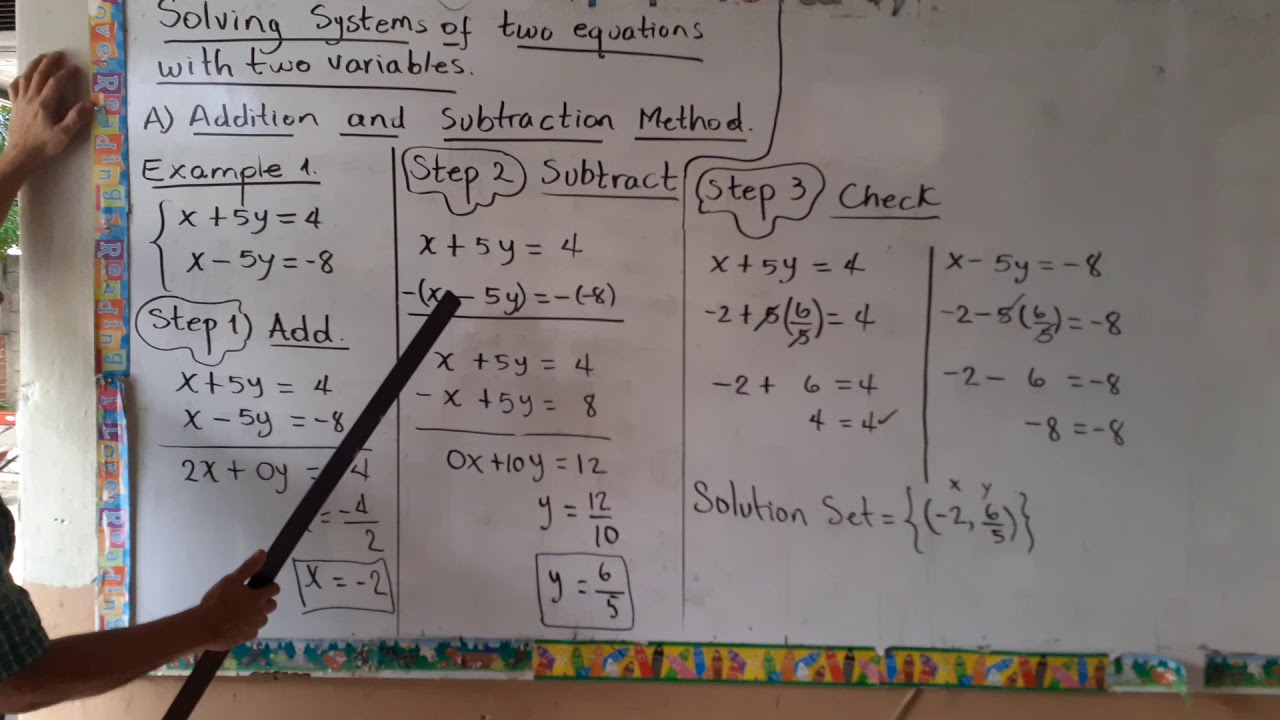 Solving Systems of two equations
with two variables.
A) Addition and Subtraction Method.
Example 1.
x + 5y = 4
x - 5y = -8
Step 1 Add.
x + 5y = 4
x - 5y = -8
2x + 0y = 4
= -4/2
x = -2
Step 2 Subtract
x + 5y = 4
-(x - 5y) = -(-8)
x + 5y = 4
-x + 5y = 8
0x + 10y = 12
y = 12/10
y = 6/5
Step 3 Check
x + 5y = 4
-2 + 5(6/5) = 4
-2 + 6 = 4
4 = 4 ✓
x - 5y = -8
-2 - 5(6/5) = -8
-2 - 6 = -8
-8 = -8
x y
Solution Set = {(-2, 6/5)}
Reading
Reading
I Love Reading